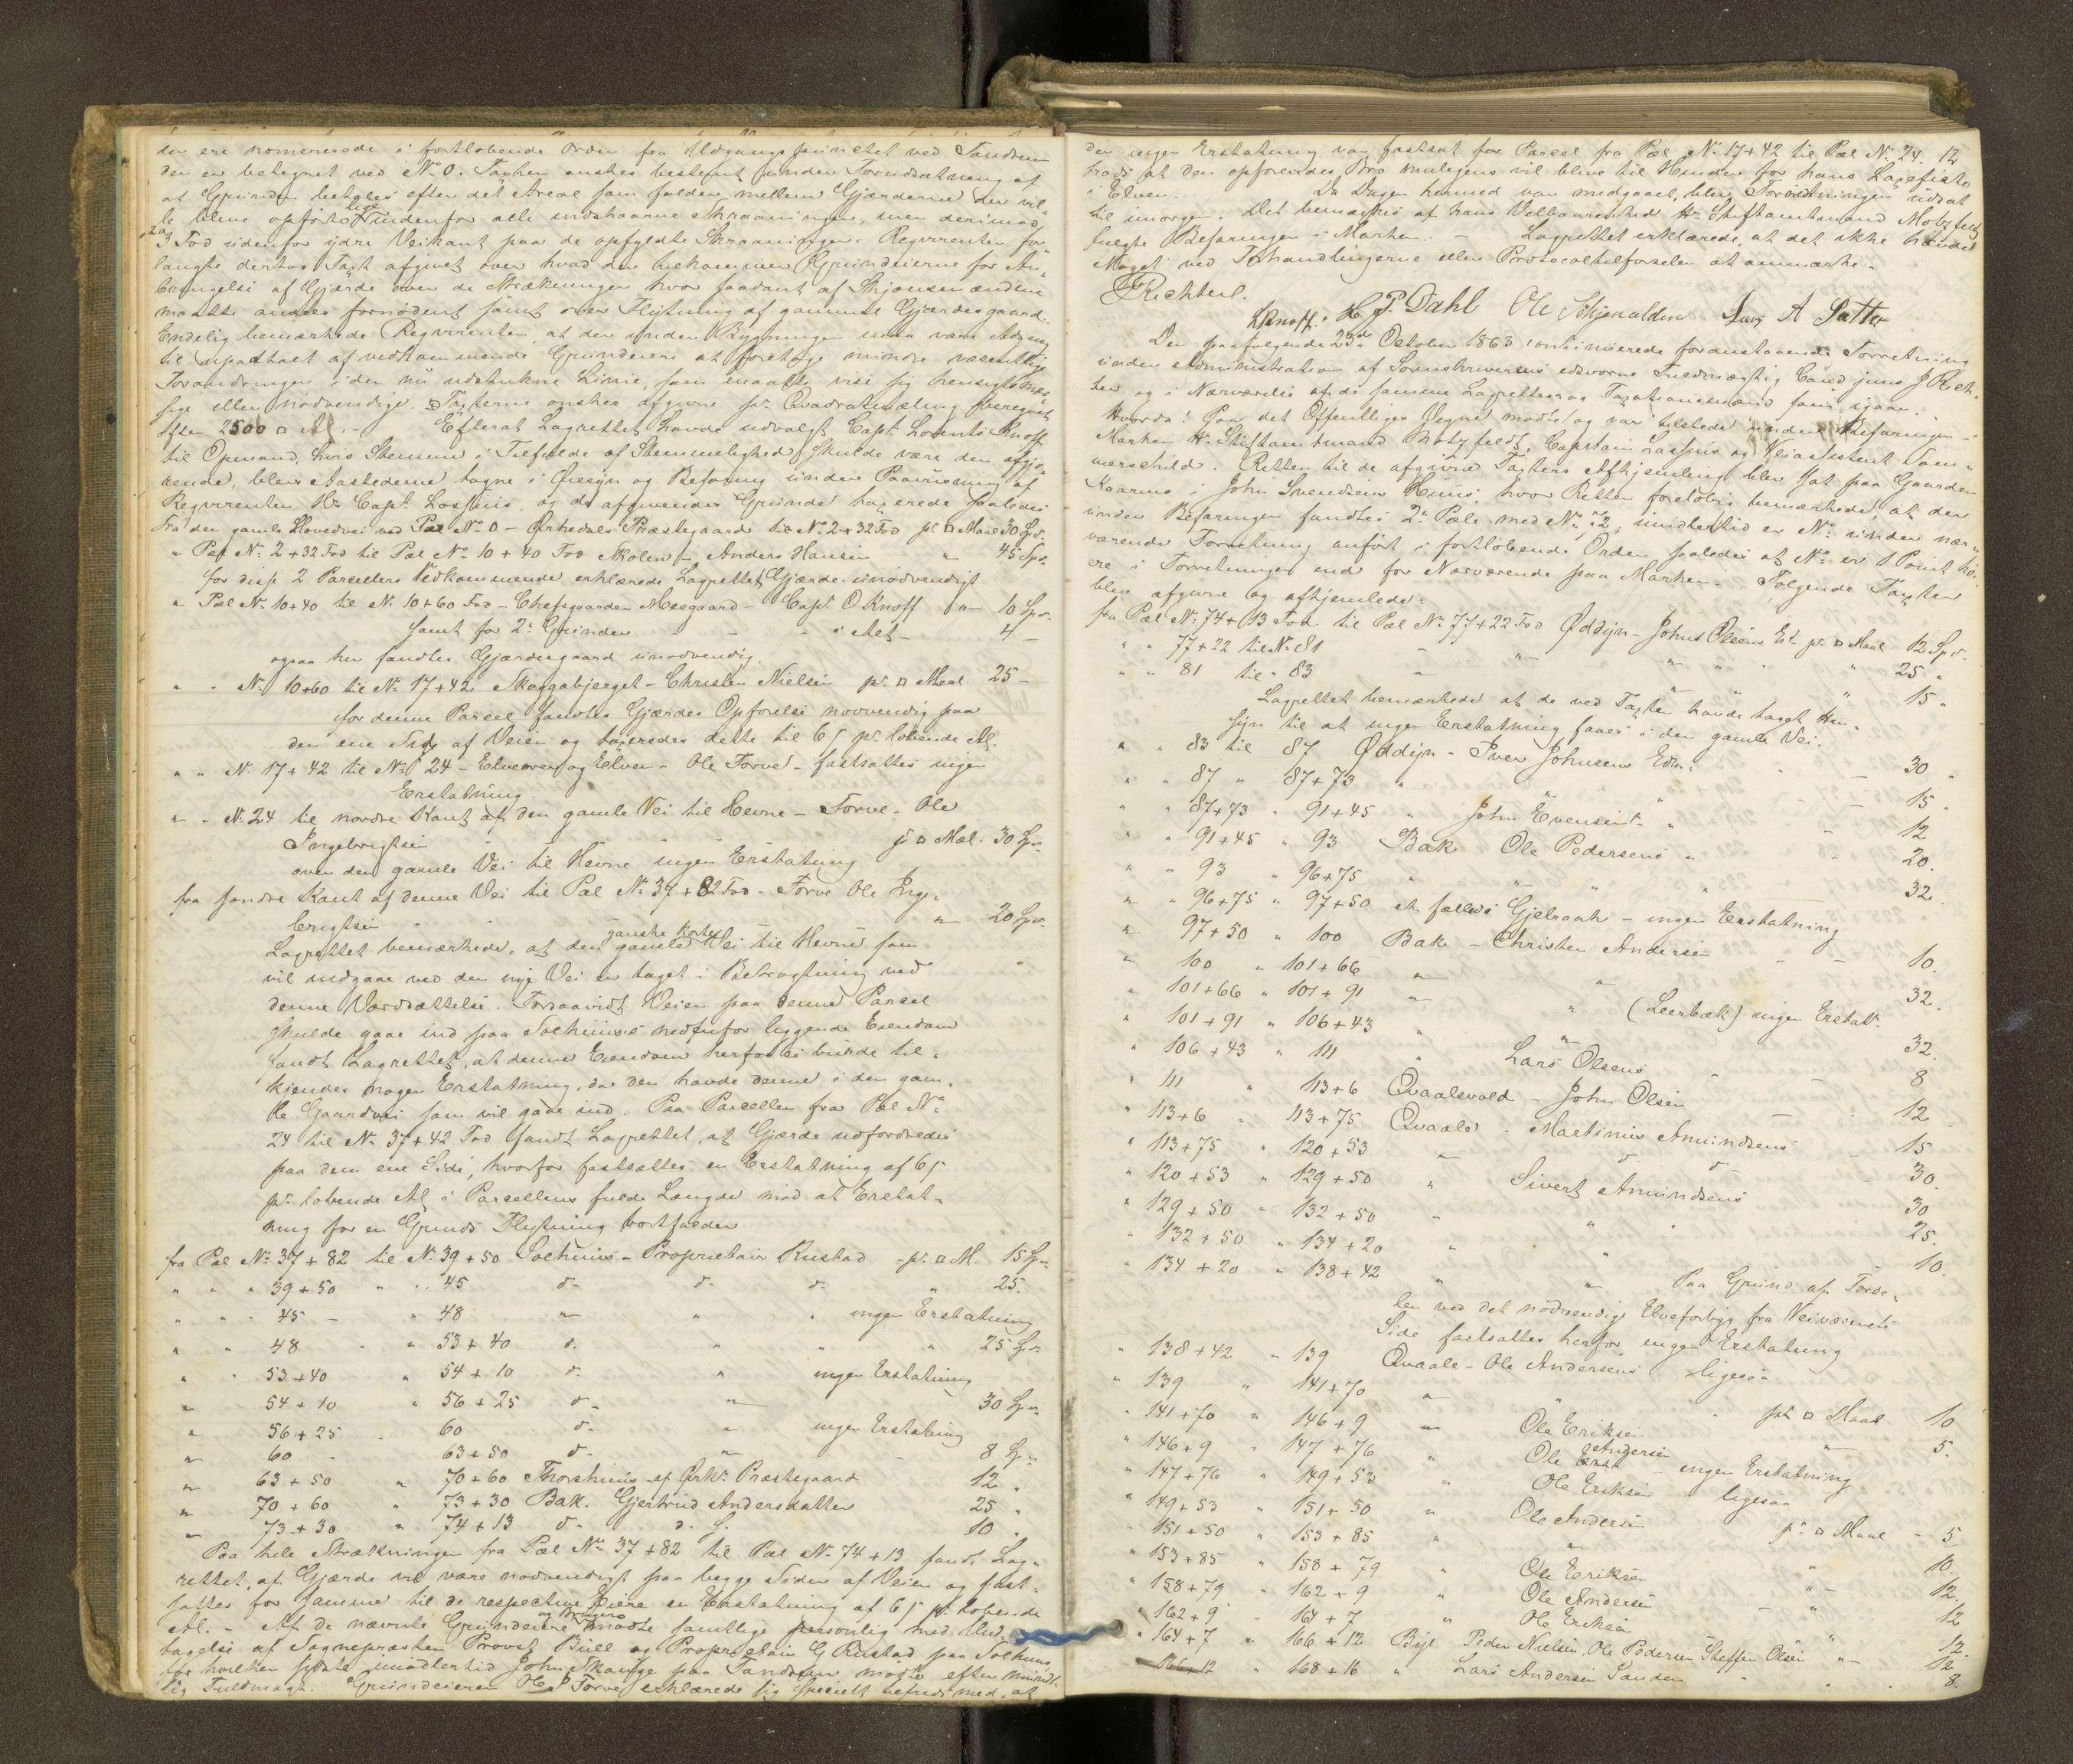 der ere nomererede i fortløbende Orden fra Udgangspunctet ved
der er betegnet ved No 0. Taxten ønskes bestemt under Forudsætning af
at Grunden betales efter det Areal som falder mellem Gjærderne der vil
le blive opførte lige indenfor alle indskaarne Skraaninger, men derimod
2 a 3 Fod udenfor ydre Veikant paa de opfyldte Skraaninger. Reqvirenten for-
langte derhos Taxt afgivet over hvad der bekommer Grundeierne for An-
bringelse af Gjærde over de Strækninger hvor saadant af Skjønsmændene
maatte ansees fornødent samt over Flytning af gammelt Gjærdesgaard.
Endelig bemærkede Reqvirenten, at der under Bygningen maa være Adgang
til upaatalt af vedkommende Grundeiere at foretage mindre væsentlige
Forandringer i den nu udstukne Linie, som maatte vise sig hensigtsmæs-
sige eller nødvendige. Taxterne ønskes afgivne pr. Qvadratmæling beregnet
efter 2500 □ Al. - Efterat Lagrettet havde udvalgt Capt. Lorents Knoff
til Opmand, hvis Stemme i Tilfælde af Stemmelighed skulde være den afgjø-
rende, blev Aastederne tagne i Øiesyn og Befaring under Paavisning af
Reqvirenten Hr Capt. Lasson, og de afgivende Grunde taxerede saaledes
Fra den gamle Hovedvei ved Pæl No 0 - Ørkedals Præstegaard til No 2+32 Fod pr □ Maal 30 Spd.
" Pæl No 2 + 32 Fod til Pæl No 10 + 40 Fod Skolen - Anders Hansen " 45 Spd.
for disse 2 Parcellers Vedkommende erklærede Lagrettet Gjærde unødvendigt
" Pæl No 10+40 til No 10+60 Fod - Chefsgaarden Moegaard - Capt. O Knoff " 10 Spd.
samt for 2de Grinder - - i Alt - 4 -
ogsaa her fandtes Gjærdesgaard unødvendig.
" " No 10+60 til No 17+42 Skaugabjerget - Christen Nielsen pr. □ Maal 25 -
for denne Parcel fandtes Gjærdes Opførelse nødvendig paa
den ene Side af Veien og taxeredes dette til 6 s pr. løbende Al.
" " No 17 + 42 til No 24 - Elveøren og Elven - Ole Forve - fastsattes ingen
Erstatning.
" " No 24 til nordre Kant af den gamle Vei til Hevne - Forve - Ole
Ingebrigtsen pr □ Mæl. 30 Spd.
over den gamle Vei til Hevne ingen Erstatning
fra søndre Kant af denne Vei til Pæl No 37 + 82 Fod - Forve Ole Inge-
brigtsen " 20 Spd.
Lagrettet bemærkede, at den ganske korte gamle Vei til Hevne som
vil indgaae ved den nye Vei er taget i Betragtning ved
denne Værdsættelse. Forsaavidt Veien paa denne Parcel
skulde gaae ind paa Solhuus nedenfor liggende Eiendom
fandt Lagrettet, at denne Eiendom herfor ei burde til-
kjendes nogen Erstatning, da den havde denne i den gam-
le Gaardvei som vil gaae ind. Paa Parcellen fra Pæl No
24 til No 37 + 42 Fod fandt Lagrettet, at Gjærde udfordredes
paa den ene Side, hvorfor fastsættes en Erstatning af 6 s
pr. løbende Al i Parcellens fulde Længde mod at Erstat-
ning for en Grinds Flytning bortfalder
fra Pæl No 37 + 82 til No 39 + 50 Solhuus - Proprietair Rustad - pr. □ M. 15 Spd.
" " " 39 + 50 " " 45 do- do- do- " 25.
" " " 45 - " 48 " " " ingen Erstatning
" " 48 " " 53 + 40 do " " " 25 Spd.
" " 53 + 40 " 54 + 10 do " ingen Erstatning
" 54 + 10 " 56 + 25 do- " 30 Spd.
" 56 + 25 - 60 do- " ingen Erstatning
" 60 - 63 + 50 do- " - 8 Spd.
" 63 + 50 " 70 + 60 Thorshuus af Ørk. Præstegaard 12 "
" 70 + 60 " 73 + 30 Bak. Gjertrud Andersdatter 25 "
" 73 + 30 " 74 + 13 do- do. 10 "
Paa hele Strækningen fra Pæl No 37 + 82 til Pæl No 74 + 13 fandt Lag-
rettet, at Gjærde vil være nødvendigt paa begge Sider af Veien og fast-
sattes for samme til de respective Eiere en Erstatning af 6 s pr. løbende
Al. - Af de nævnte Grundeiere og Brugere mødte samtlige personlig med Und-
tagelse af Sognepræsten Provst Bull og Proprietair G Rustad paa Solhuus
for hvilken sidste imidlertid John Skauge paa mødte efter mundt-
lig Fuldmagt. Grundeieren Ole Forve erklærede sig specielt tilfreds med, at
der ingen Erstatning var fastsat for Parcel fra Pæl No 17+42 til Pæl No 24. 12
trods at den opførendes Bro muligens vil blive til Hinder for hans Laxefiske
i Elven. Da Dagen hermed var medgaaet, blev Forretningen udsat
til imorgen. Det bemærkes af hans Velbaarenhed Hr. Stiftamtmand Motzfeldt
fulgte Befaringen i Marken. - Lagrettet erklærede, at det ikke havde
Noget ved Forhandlingerne eller Protocoltilførselen at anmærke.
JRichter.
LKnoff. H. P. Dahl Ole Skjenaldsen Lars A Sætter
Den paafølgende 23de October 1863 continuerede foranstaaende Forretning
under Administration af Sorenskriverens edsvorne Fuldmægtig Cand. juris J Rich-
ter og i Nærværelse af de samme Lagrettes- og Taxationsmænd som igaar.
Hvorda! Paa det Offentliges Vegne mødte og var tilstede under Befaringen i
Marken Hr. Stiftamtmand Motzfeldt, Capitain Lasson og Veiassistent Tom-
merschild. Retten til de afgivne Taxters Afhjemling blev sat paa Gaarden
Kaarmo i John Svendsens Huus, hvor Retten foreløbig bemærkede at der
under Befaringen fandtes 2de Pæle med No 72; imidlertid er No under nær-
værende Forretning anført i fortløbende Orden saaledes at No er 1 Point hø-
ere i Forretningen end for Nærværende paa Marken. Følgende Taxter
blev afgivne og afhjemlede:
fra Pæl No 74 + 13 Fod til Pæl No 77 + 22 Fod Øddyn - Johns Olsens Ed. pr □ Maal 12 Spd.
" " 77+22 til No 81 - " " " " 25 "
" " 81 til " 83 - " " " 15 "
Lagrettet bemærkede at de ved Taxten havde taget Hen-
syn til at ingen Erstatning faaes i den gamle Vei.
" " 83 til 87 Øddyn - Iver Johnsens Edm: - - 30 "
" " 87 " 87+73 " " " - - 15 "
" " 87+73 " 91+45 " John Evensens " - 12
" " 91+45 " 93 Bak Ole Pedersens " - 20.
" " 93 " 96+75 " " " " 32
" " 96+75 " 97+50 et fælleds Gjelraak - ingen Erstatning
" 97+50 " 100 Bak - Christen Andersen - - 10.
" 100 " 101+66 " " 32.
" 101+66 " 101+91 " " (Leerbæk) ingen Erstatn.
" 101+91 " 106+43 " " 32.
" 106+43 " 111 " Lars Olsens - - 8
" 111 " 113+6 Qvaalsvold - John Olsen - - 12
" 113+6 " 113+75 Qvaale - Martinus Amundsens - 15
" 113+75 " 120+53 " do do - 30.
" 120+53 " 129+50 " Sivert Amundsens 30
" 129+50 " 132+50 " " 25.
" 132+50 " 134+20 " " 10.
" 134+20 " 138+42 " " Paa Grund af Forde-
len ved det nødvendige Elveforbyg fra Veivæsenets
Side fastsattes herfor ingen Erstatning
" 138+42 " 139 Qvaale - Ole Andersens ligesaa
" 139 " 141+70 " " pr □ Maal 10
" 141+70 " 146+9 " Ole Eriksen " 5.
" 146+9 " 147+76 " Ole Andersen - ingen Erstatning
" 147+76 " 149+53 " Ole Eriksen ligesaa
" 149+53 " 151+50 " Ole Andersen pr. □ Maal - 5
" 151+50 " 153+85 " " " 10.
" 153+85 " 158+79 " Ole Eriksen " - 12.
" 158+79 " 162+9 " Ole Andersen - " 12
" 162+9 - 164+7 " Ole Eriksen " 12.
" 164+7 " 166+12 Bye Peder Nielsen, Ole Pedersen Steffen Olsen " - 12
" 166+12 " 168+16 " Lars Andersen Sanden - " " 8.